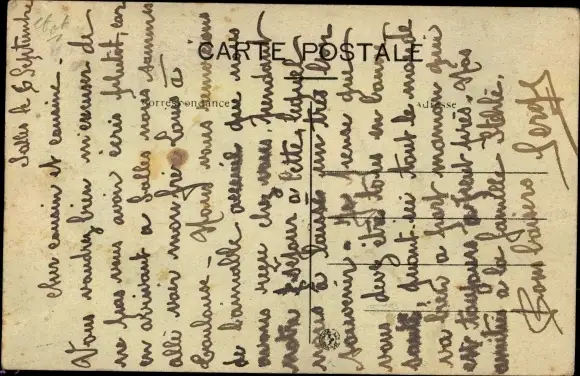 CARTE POSTALE
Correspondance
Adresse
Salles le 6 Septembre
Cher cousin et cousine.
Vous voudrez bien m'excuser de
ne pas vous avoir écris plutôt, car
en arrivant a Salles nous sommes
allé voir mon frère Louis à
Toulouse. Nous vous remercions
de l'aimable accueil que nous
avons reçu chez vous, pendant
notre séjour à Cette, lequel
nous a laissé un très bon
souvenir. Je pense que
vous devez être tous en bonne
santé, quant ici tout le monde
va bien à part maman qui
est toujours à peut près. Nos
amitiés à la famille
Bons baisers Serge